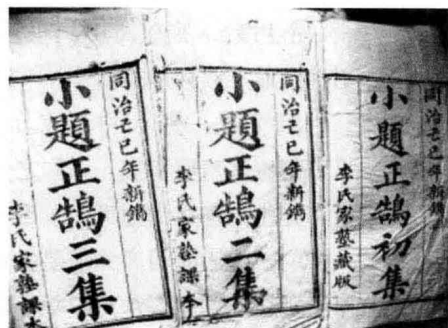 同治己巳年新鐫
小題正鵠初集
李氏家塾藏版
同治己巳年新鐫
小題正鵠二集
李氏家塾課本
同治己巳年新鐫
小題正鵠三集
李氏家塾課本